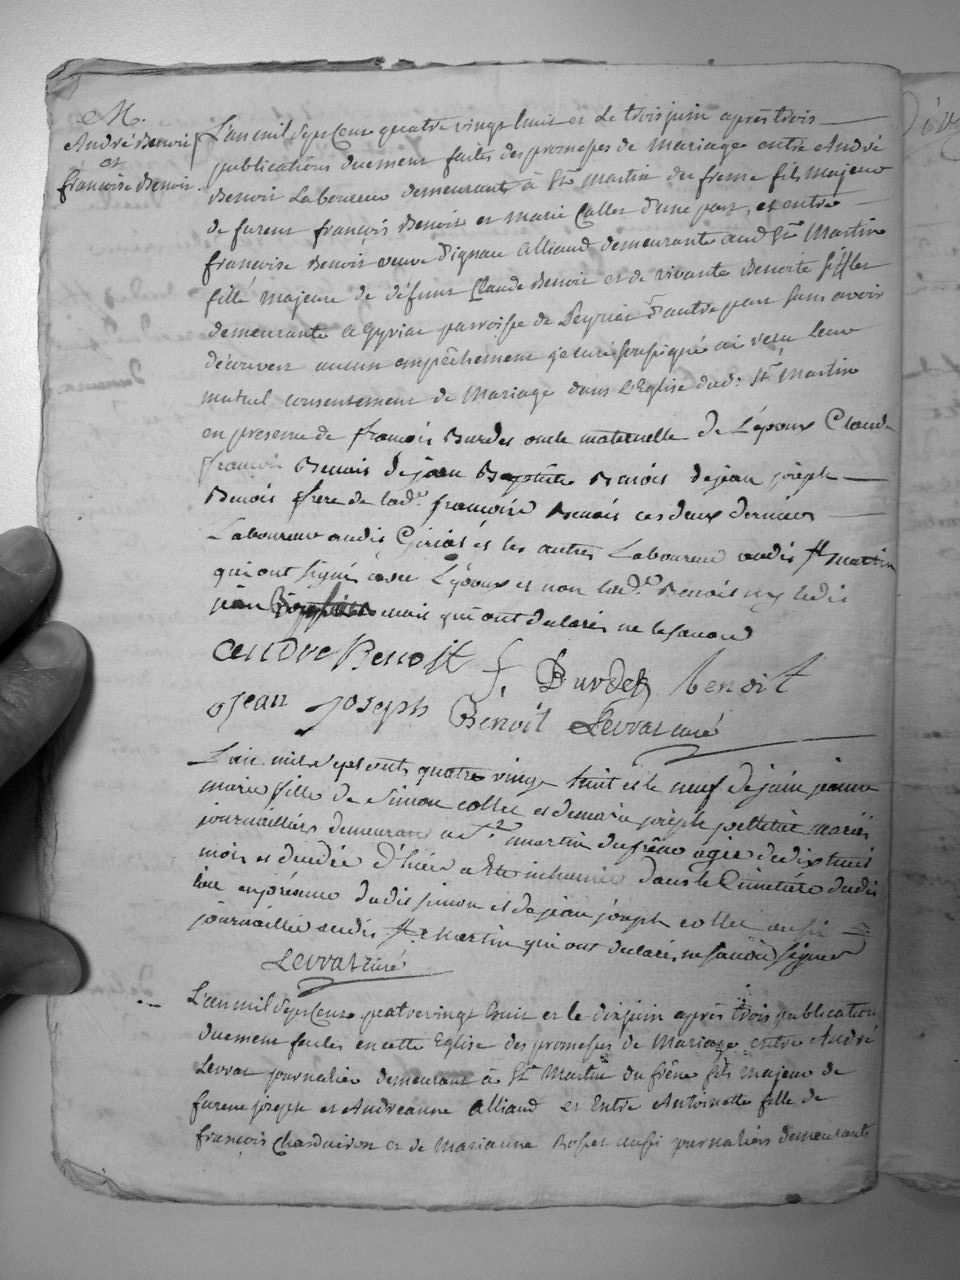 M.
André Benoit
et
françoise Benoit
L'an mil sept cent quatre vingt huit et le trois juin après trois
publications duement faites des promesses de mariage entre André
Benoit Laboureur demeurant à St martin du frene fils majeur
de furent françois Benoit et marie Callet d'une part, et entre
françoise Benoit veuve d'ignace Alliaud demeurante aud St Martin
fille majeure de défunt Claude Benoit et de vivante Benoite
demeurante a Gyriat parroisse de Peyriat d'autre part sans avoir
découvert aucun empêchement je curé soussigné ai vecu leur
mutuel consentement de Mariage dans L'Eglise dud: St Martin
en presence de françois Burdet oncle maternelle de L'époux Claude
francois Benois de jean Baptiste Benois de jean joseph
Benois frère de lad.e francoise Benois ces deux derniers
Laboureur audit Giriat et les autres Laboureur audis St martin
qui ont signé avec L'époux et non lad.e Benois ny ledis
jean Baptiste mais qui ont declarés ne le savoir
andre Benoist f. Burdet benoit
jean joseph Benoit Levrat curé
L'an mil sept cents quatre vingt huit et le neuf de juin jeanne
marie fille de Simon collet et de marie joseph pelletié mariés
journailliés demeurant a St martin du frêne agée de dix huit
mois et decedée d'hier a Eté inhumée dans le Cimetière dudis
lieu en présence dudis simon et de jean joseph collet aussi
journaillié audis St Martin qui ont declarés ne savoir signer
Levrat curé
L'an mil sept cent quatre vingt huit et le dix juin après trois publication
duement faites en cette Eglise des promesses de Mariage entre André
Levrat journalier demeurant à St Martin du frêne fils majeur de
furent joseph et Andréanne Alliaud et Entre Antoinette fille de
françois Charduiron et de Marianne Rosset aussi journaliers demeurants